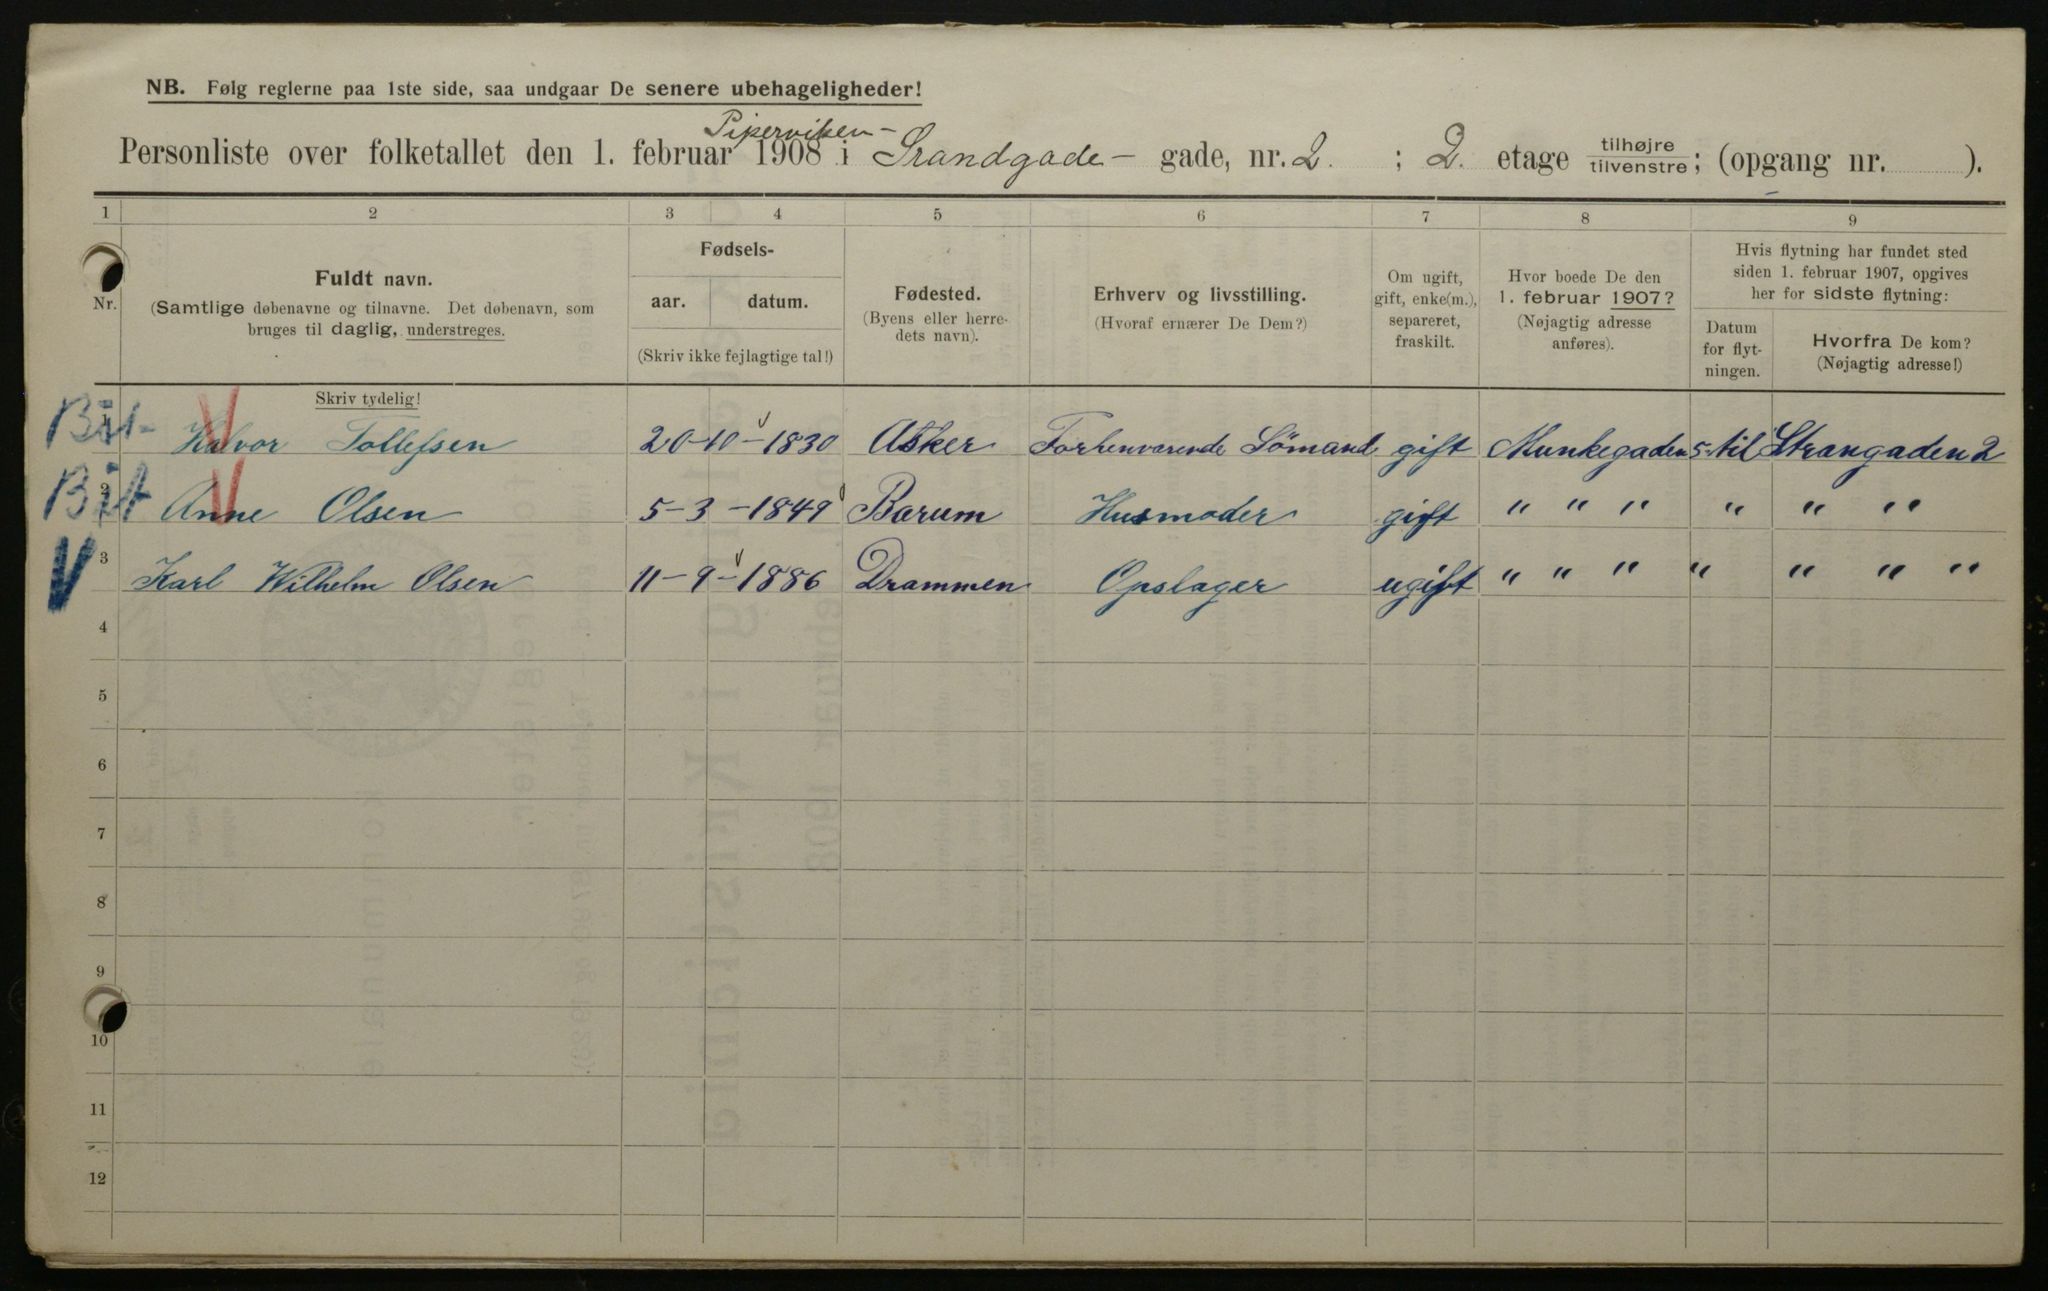 NB. Følg reglerne paa 1ste side, saa undgaar De senere ubehageligheder!
Piperviken-
Personliste over folketallet den 1. februar 1908 i Srandgade- gade, nr. 2. ; 2. etage tilhøjre/tilvenstre; (opgang nr. ).
1 2 3 4 5 6 7 8 9
Nr.
Fuldt navn.
(Samtlige døbenavne og tilnavne. Det døbenavn, som
bruges til daglig, understreges.
Fødsels-
aar. datum.
(Skriv ikke fejlagtige tal!)
Fødested.
(Byens eller herre-
dets navn).
Erhverv og livsstilling.
(Hvoraf ernærer De Dem?)
Om ugift,
gift, enke(m.),
separeret,
fraskilt.
Hvor boede De den
1. februar 1907?
(Nøjagtig adresse
anføres).
Hvis flytning har fundet sted
siden 1. februar 1907, opgives
her for sidste flytning:
Datum
for flyt-
ningen.
Hvorfra De kom?
(Nøjagtig adresse!)
Skriv tydelig!
1 Halvor Tollefsen 20-10-1830 Asker Forhenværende Sömand gift Munkegaden 5 til Strangaden 2
2 Anne Olsen 5-3-1849 Bærum Husmoder gift " " " " " "
3 Karl Wilhelm Olsen 11-9-1886 Drammen Opslager ugift " " " " " " "
4
5
6
7
8
9
10
11
12